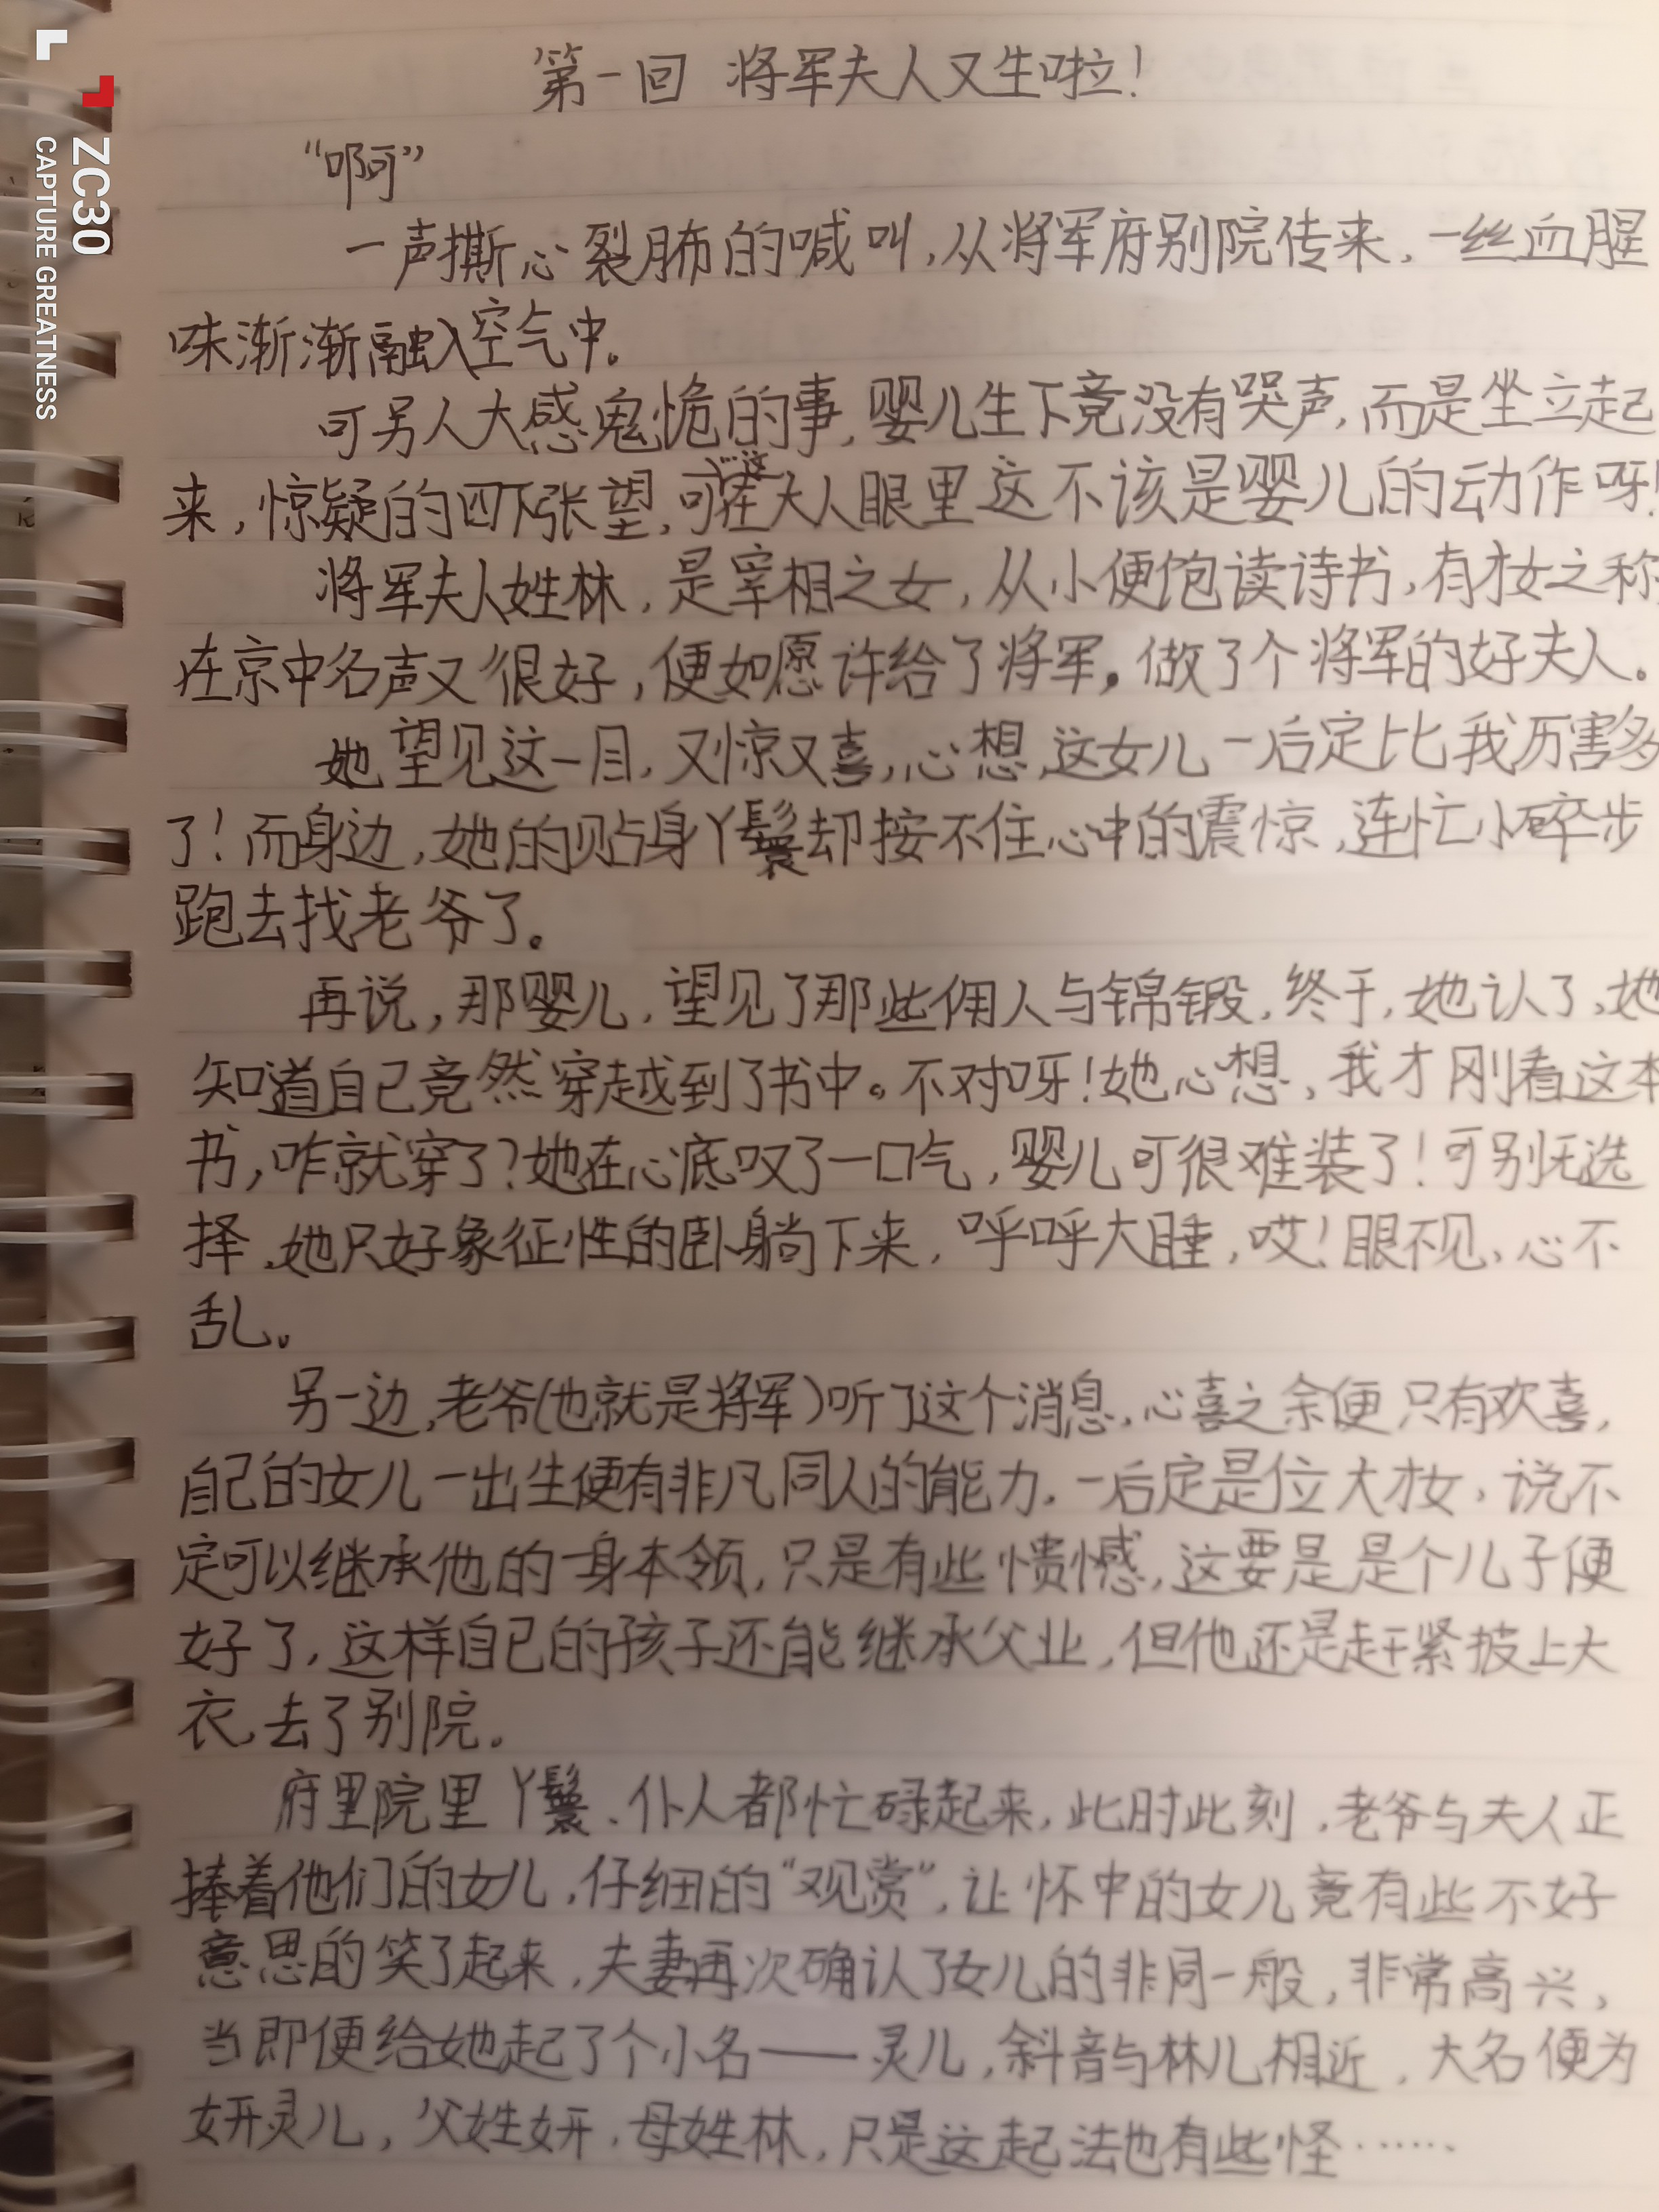 ZC30
CAPTURE GREATNESS
第一回 将军夫人又生啦!
“啊”
一声撕心裂肺的喊叫,从将军府别院传来,一丝血腥
味渐渐融入空气中。
可另人大感鬼怪的事,婴儿生下竟没有哭声,而是坐立起
来,惊疑的四下张望,可在夫人眼里这不该是婴儿的动作呀!
将军夫人姓林,是宰相之女,从小便饱读诗书,有才女之称
在京中名声又很好,便如愿许给了将军,做了个将军的好夫人。
她望见这一目,又惊又喜,心想,这女儿一后定比我厉害多
了!而身边,她的贴身丫鬟却按不住心中的震惊,连忙小碎步
跑去找老爷了。
再说,那婴儿,望见了那些佣人与锦锻,终于,她认了,她
知道自己竟然穿越到了书中。不对呀!她心想,我才刚看这本
书,咋就穿了?她在心底叹了一口气,婴儿可很难装了!可别无选
择,她只好象征性的卧躺下来,呼呼大睡,哎!眼不见,心不
乱。
另一边,老爷(也就是将军)听了这个消息,心喜之余便只有欢喜,
自己的女儿一出生便有非凡同人的能力,一后定是位大才女,说不
定可以继承他的一身本领,只是有些愦憾,这要是是个儿子便
好了,这样自己的孩子还能继承父业,但他还是赶紧披上大
衣,去了别院。
府里院里丫鬟、仆人都忙碌起来,此时此刻,老爷与夫人正
捧着他们的女儿,仔细的“观赏”,让怀中的女儿竟有些不好
意思的笑了起来,夫妻再次确认了女儿的非同一般,非常高兴,
当即便给她起了个小名——灵儿,斜音与林儿相近,大名便为
妍灵儿,父姓妍,母姓林,只是这起法也有些怪……